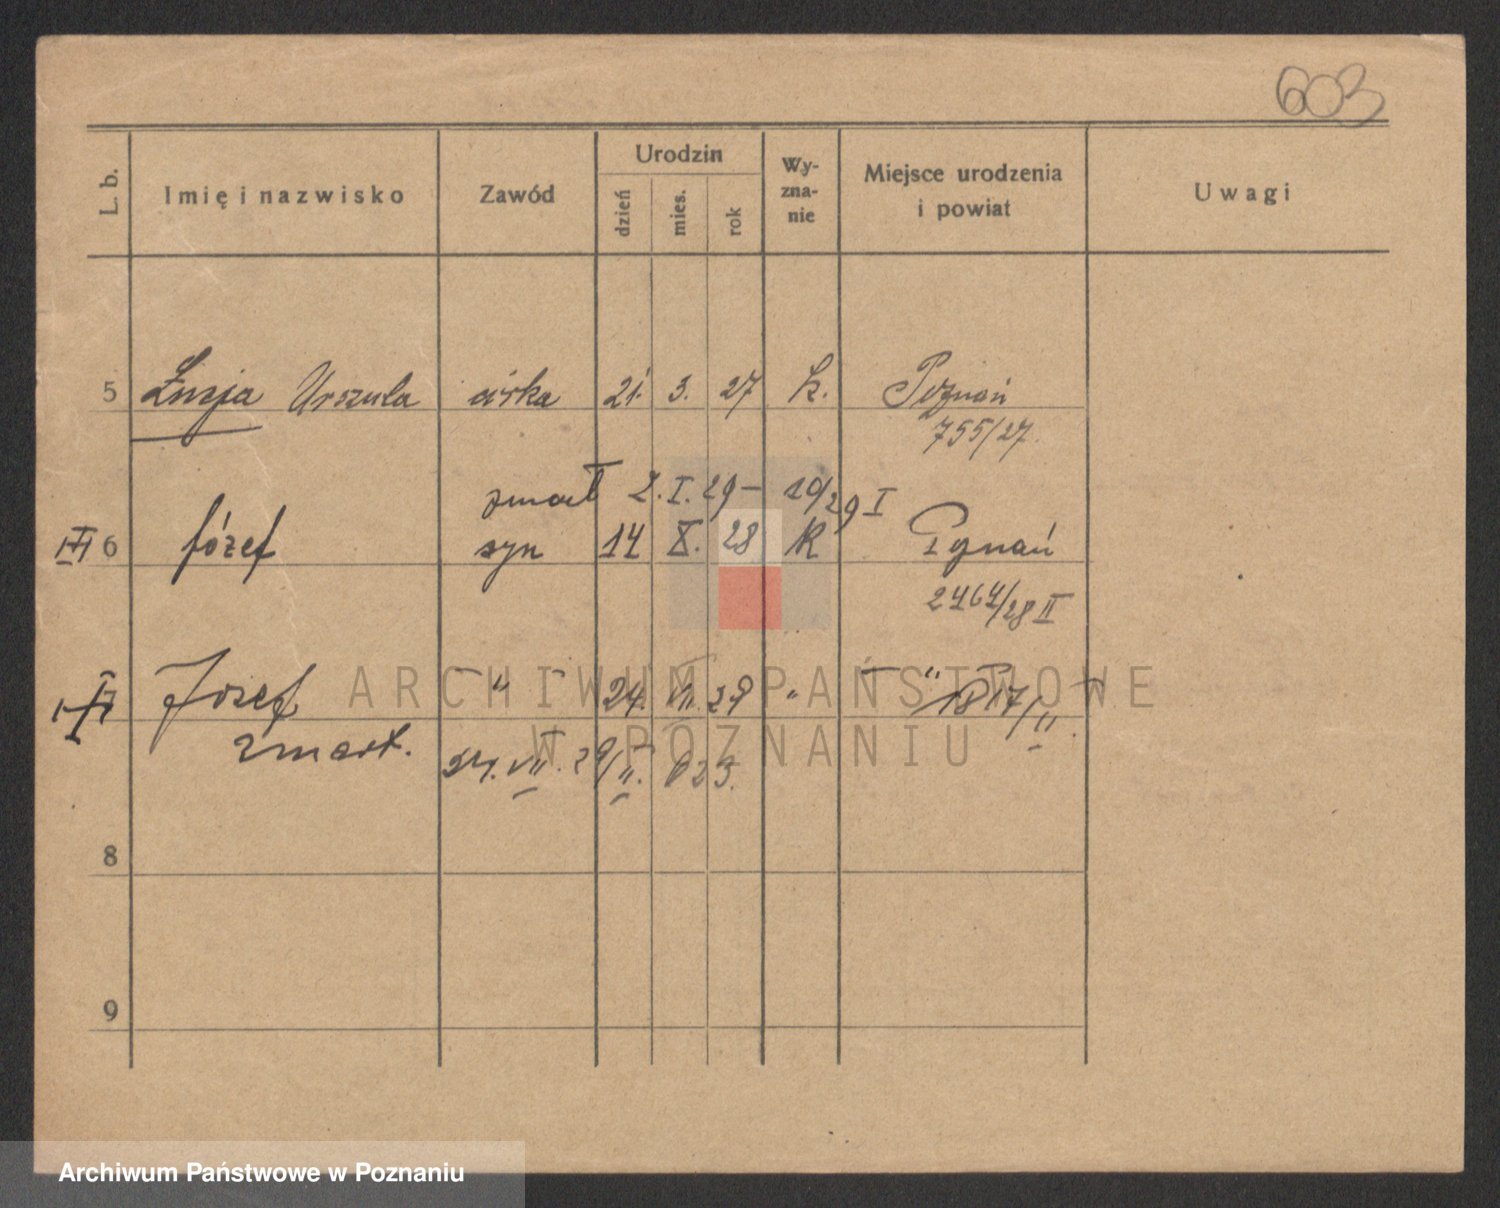 603
L. b. Imię i nazwisko Zawód Urodzin dzień mies. rok Wy-zna-nie Miejsce urodzenia i powiat Uwagi
5 Łucja Urszula córka 21. 3. 27 k. Poznań
755/27.
zmarł 2. I. 29 – 10/29 I
6 Józef syn 14 X. 28 k Poznań
2464/28 II
Józef " 24. VII 29 " " 1817/II.
zmarł. 24. VII. 29/II. 623.
8
9
ARCHIWUM PAŃSTWOWE
W POZNANIU
Archiwum Państwowe w Poznaniu